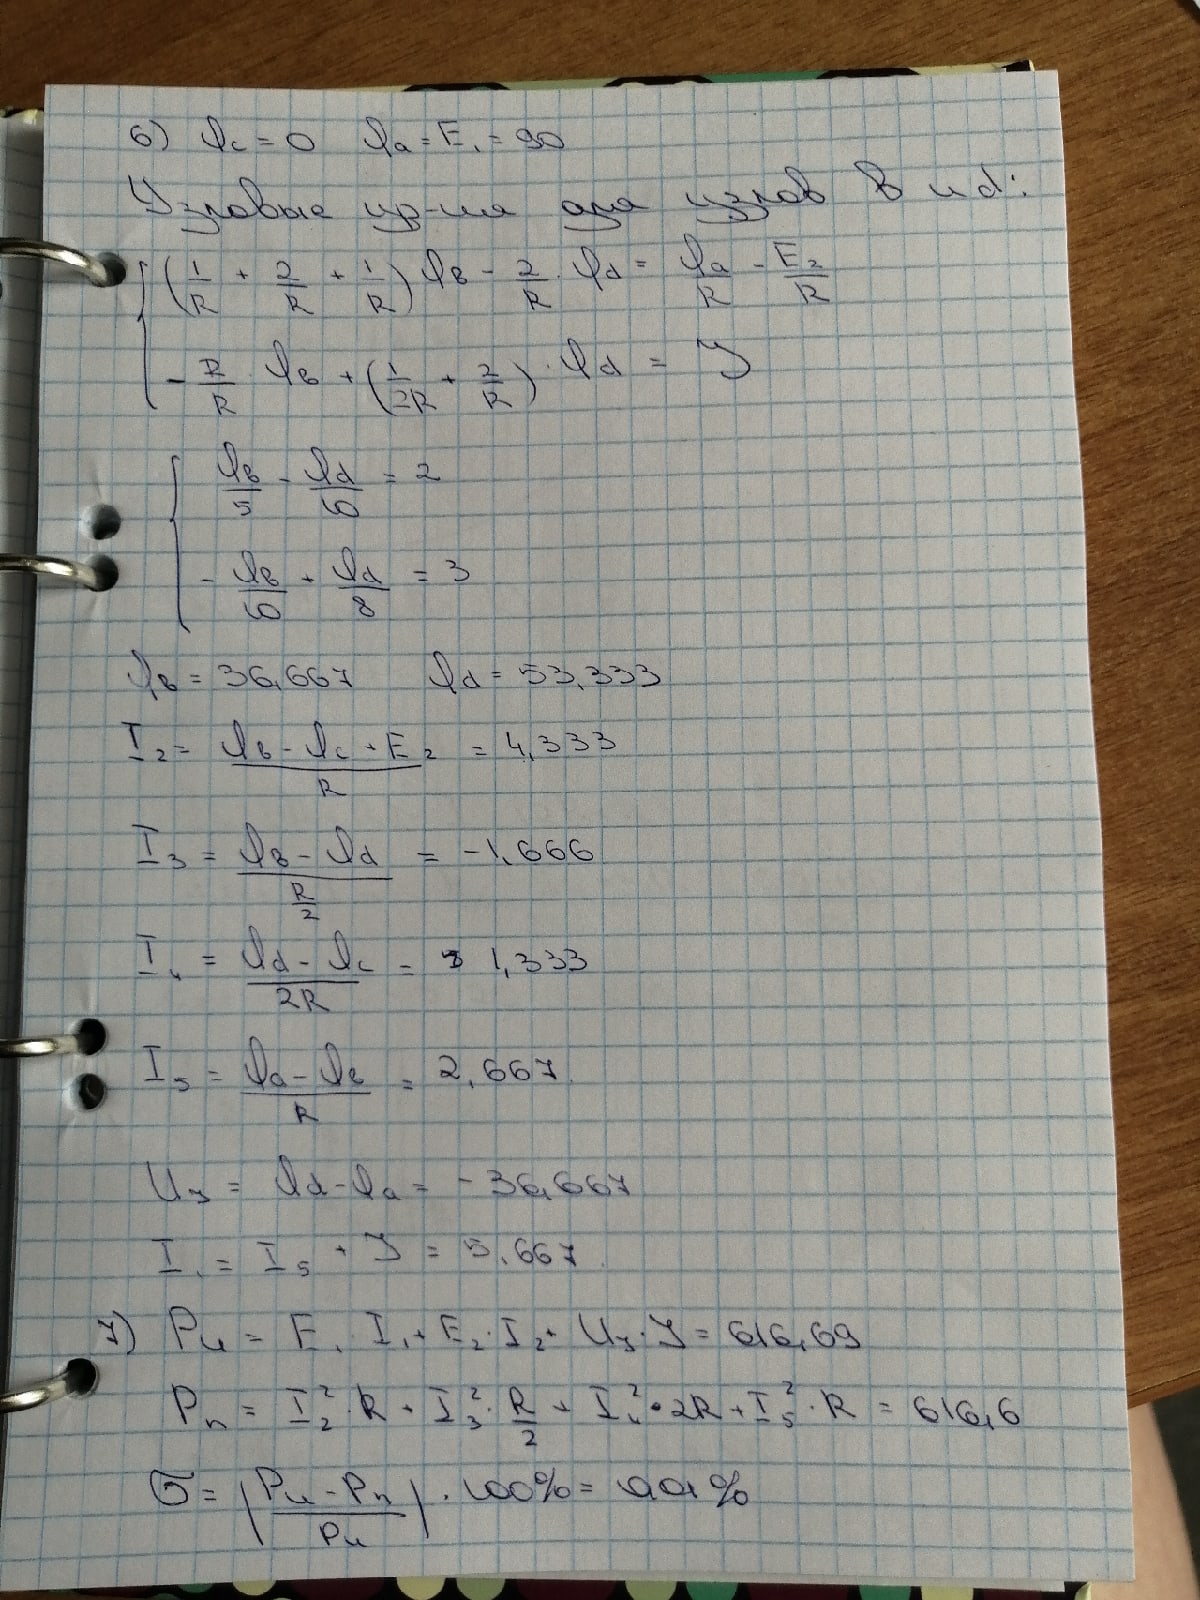 6) φc = 0 φa = E₁ = 90
Узловые ур-ия для узлов в и d:
(1/R + 2/R + 1/R) φв - 2/R · φd = φa/R - E₂/R
- R/R · φв + (1/2R + 2/R) · φd = J
φв/5 - φd/10 = 2
- φв/10 + φd/8 = 3
φв = 36,667 φd = 53,333
I₂ = (φв - φc + E₂)/R = 4,333
I₃ = (φв - φd)/(R/2) = -1,666
I₄ = (φd - φc)/2R = 1,333
I₅ = (φa - φв)/R = 2,667
UJ = φd - φa = -36,667
I₁ = I₅ + J = 5,667
7) Pи = E₁ · I₁ + E₂ · I₂ + UJ · J = 616,69
Pп = I₂² · R + I₃² · R/2 + I₄² · 2R + I₅² · R = 616,6
σ = |(Pи - Pп)/Pи| · 100% = 0,01%